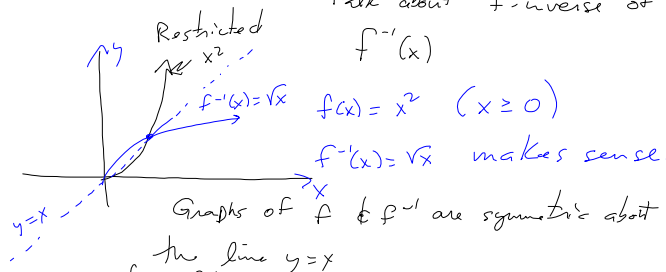 about inverse of
Restricted
f⁻¹(x)
y
x²
f⁻¹(x) = √x
f(x) = x² (x ≥ 0)
f⁻¹(x) = √x makes sense
x
y=x
Graphs of f & f⁻¹ are symmetric about
the line y=x